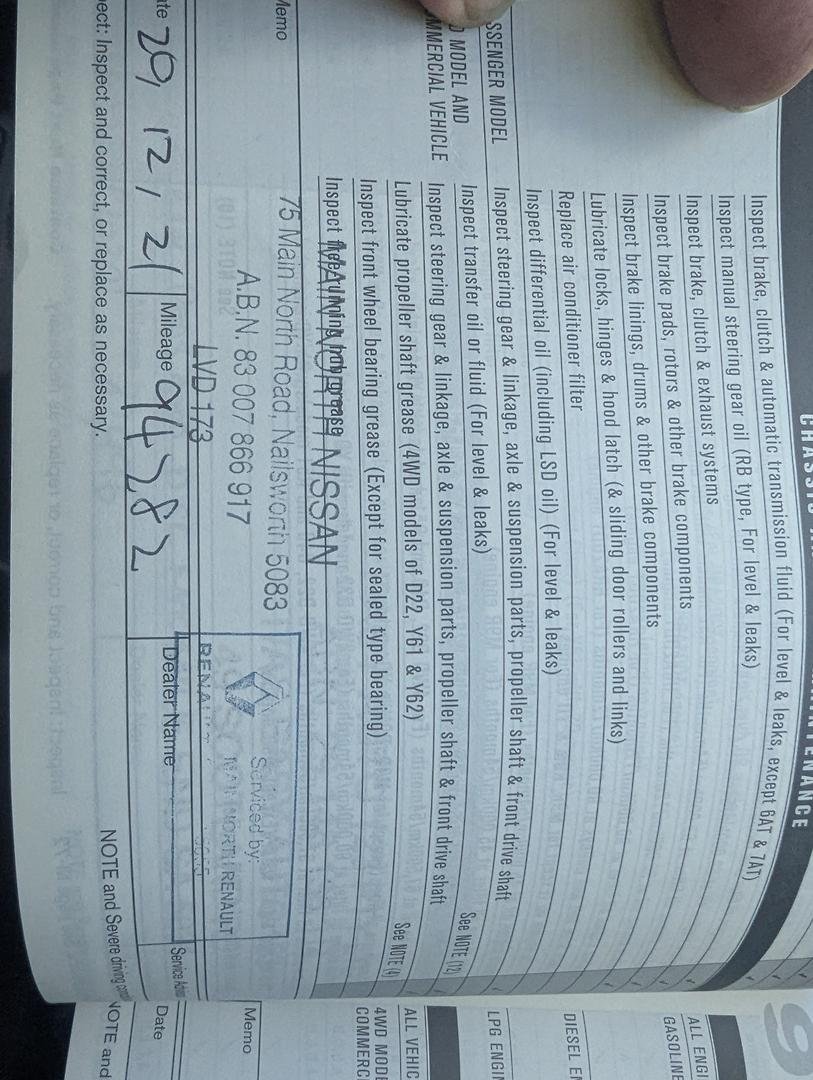 CHASSIS
MAINTENANCE
Inspect brake, clutch & automatic transmission fluid (For level & leaks, except 6AT & 7AT)
Inspect manual steering gear oil (RB type, For level & leaks)
Inspect brake, clutch & exhaust systems
Inspect brake pads, rotors & other brake components
Inspect brake linings, drums & other brake components
Lubricate locks, hinges & hood latch (& sliding door rollers and links)
Replace air conditioner filter
Inspect differential oil (including LSD oil) (For level & leaks)
SSENGER MODEL
Inspect steering gear & linkage, axle & suspension parts, propeller shaft & front drive shaft
D MODEL AND
MMERCIAL VEHICLE
Inspect transfer oil or fluid (For level & leaks) See NOTE (12)
Inspect steering gear & linkage, axle & suspension parts, propeller shaft & front drive shaft
Lubricate propeller shaft grease (4WD models of D22, Y61 & Y62) See NOTE (4)
Inspect front wheel bearing grease (Except for sealed type bearing)
Inspect free running hub grease
Memo
MAIN NORTH NISSAN
75 Main North Road, Nailsworth 5083
A.B.N. 83 007 866 917
LVD 173
Serviced by:
MAIN NORTH RENAULT
RENAULT
ate 20, 12, 21
Mileage 94282
Dealer Name
Service
ect: Inspect and correct, or replace as necessary.
NOTE and Severe driving
9
ALL ENGI
GASOLINE
DIESEL EN
LPG ENGIN
ALL VEHIC
4WD MODE
COMMERC
Memo
Date
NOTE and